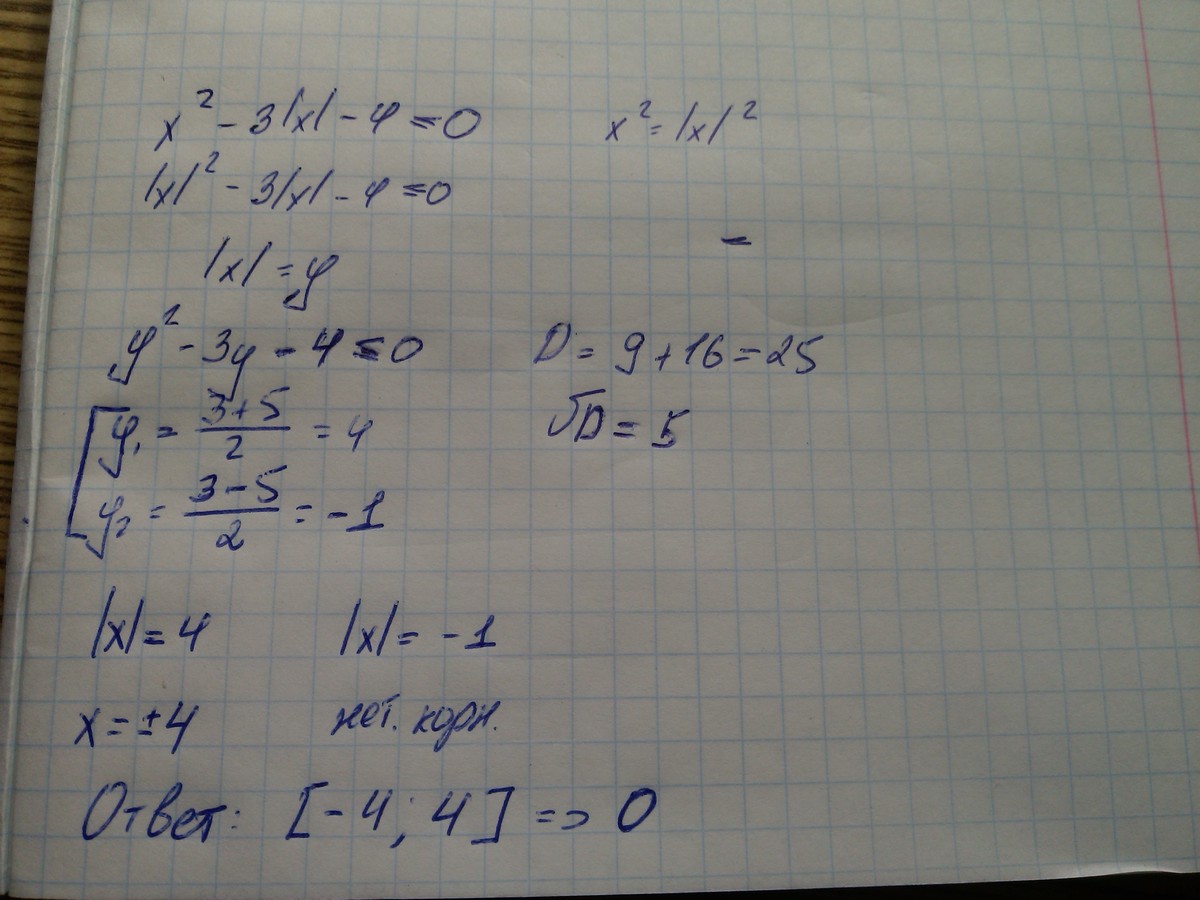 x² - 3|x| - 4 = 0     x² = |x|²
|x|² - 3|x| - 4 = 0
-
|x| = y
y² - 3y - 4 = 0     D = 9 + 16 = 25
y₁ = (3+5)/2 = 4     √D = 5
y₂ = (3-5)/2 = -1
|x| = 4     |x| = -1
x = ±4     нет. корн.
Ответ: [-4; 4] => 0